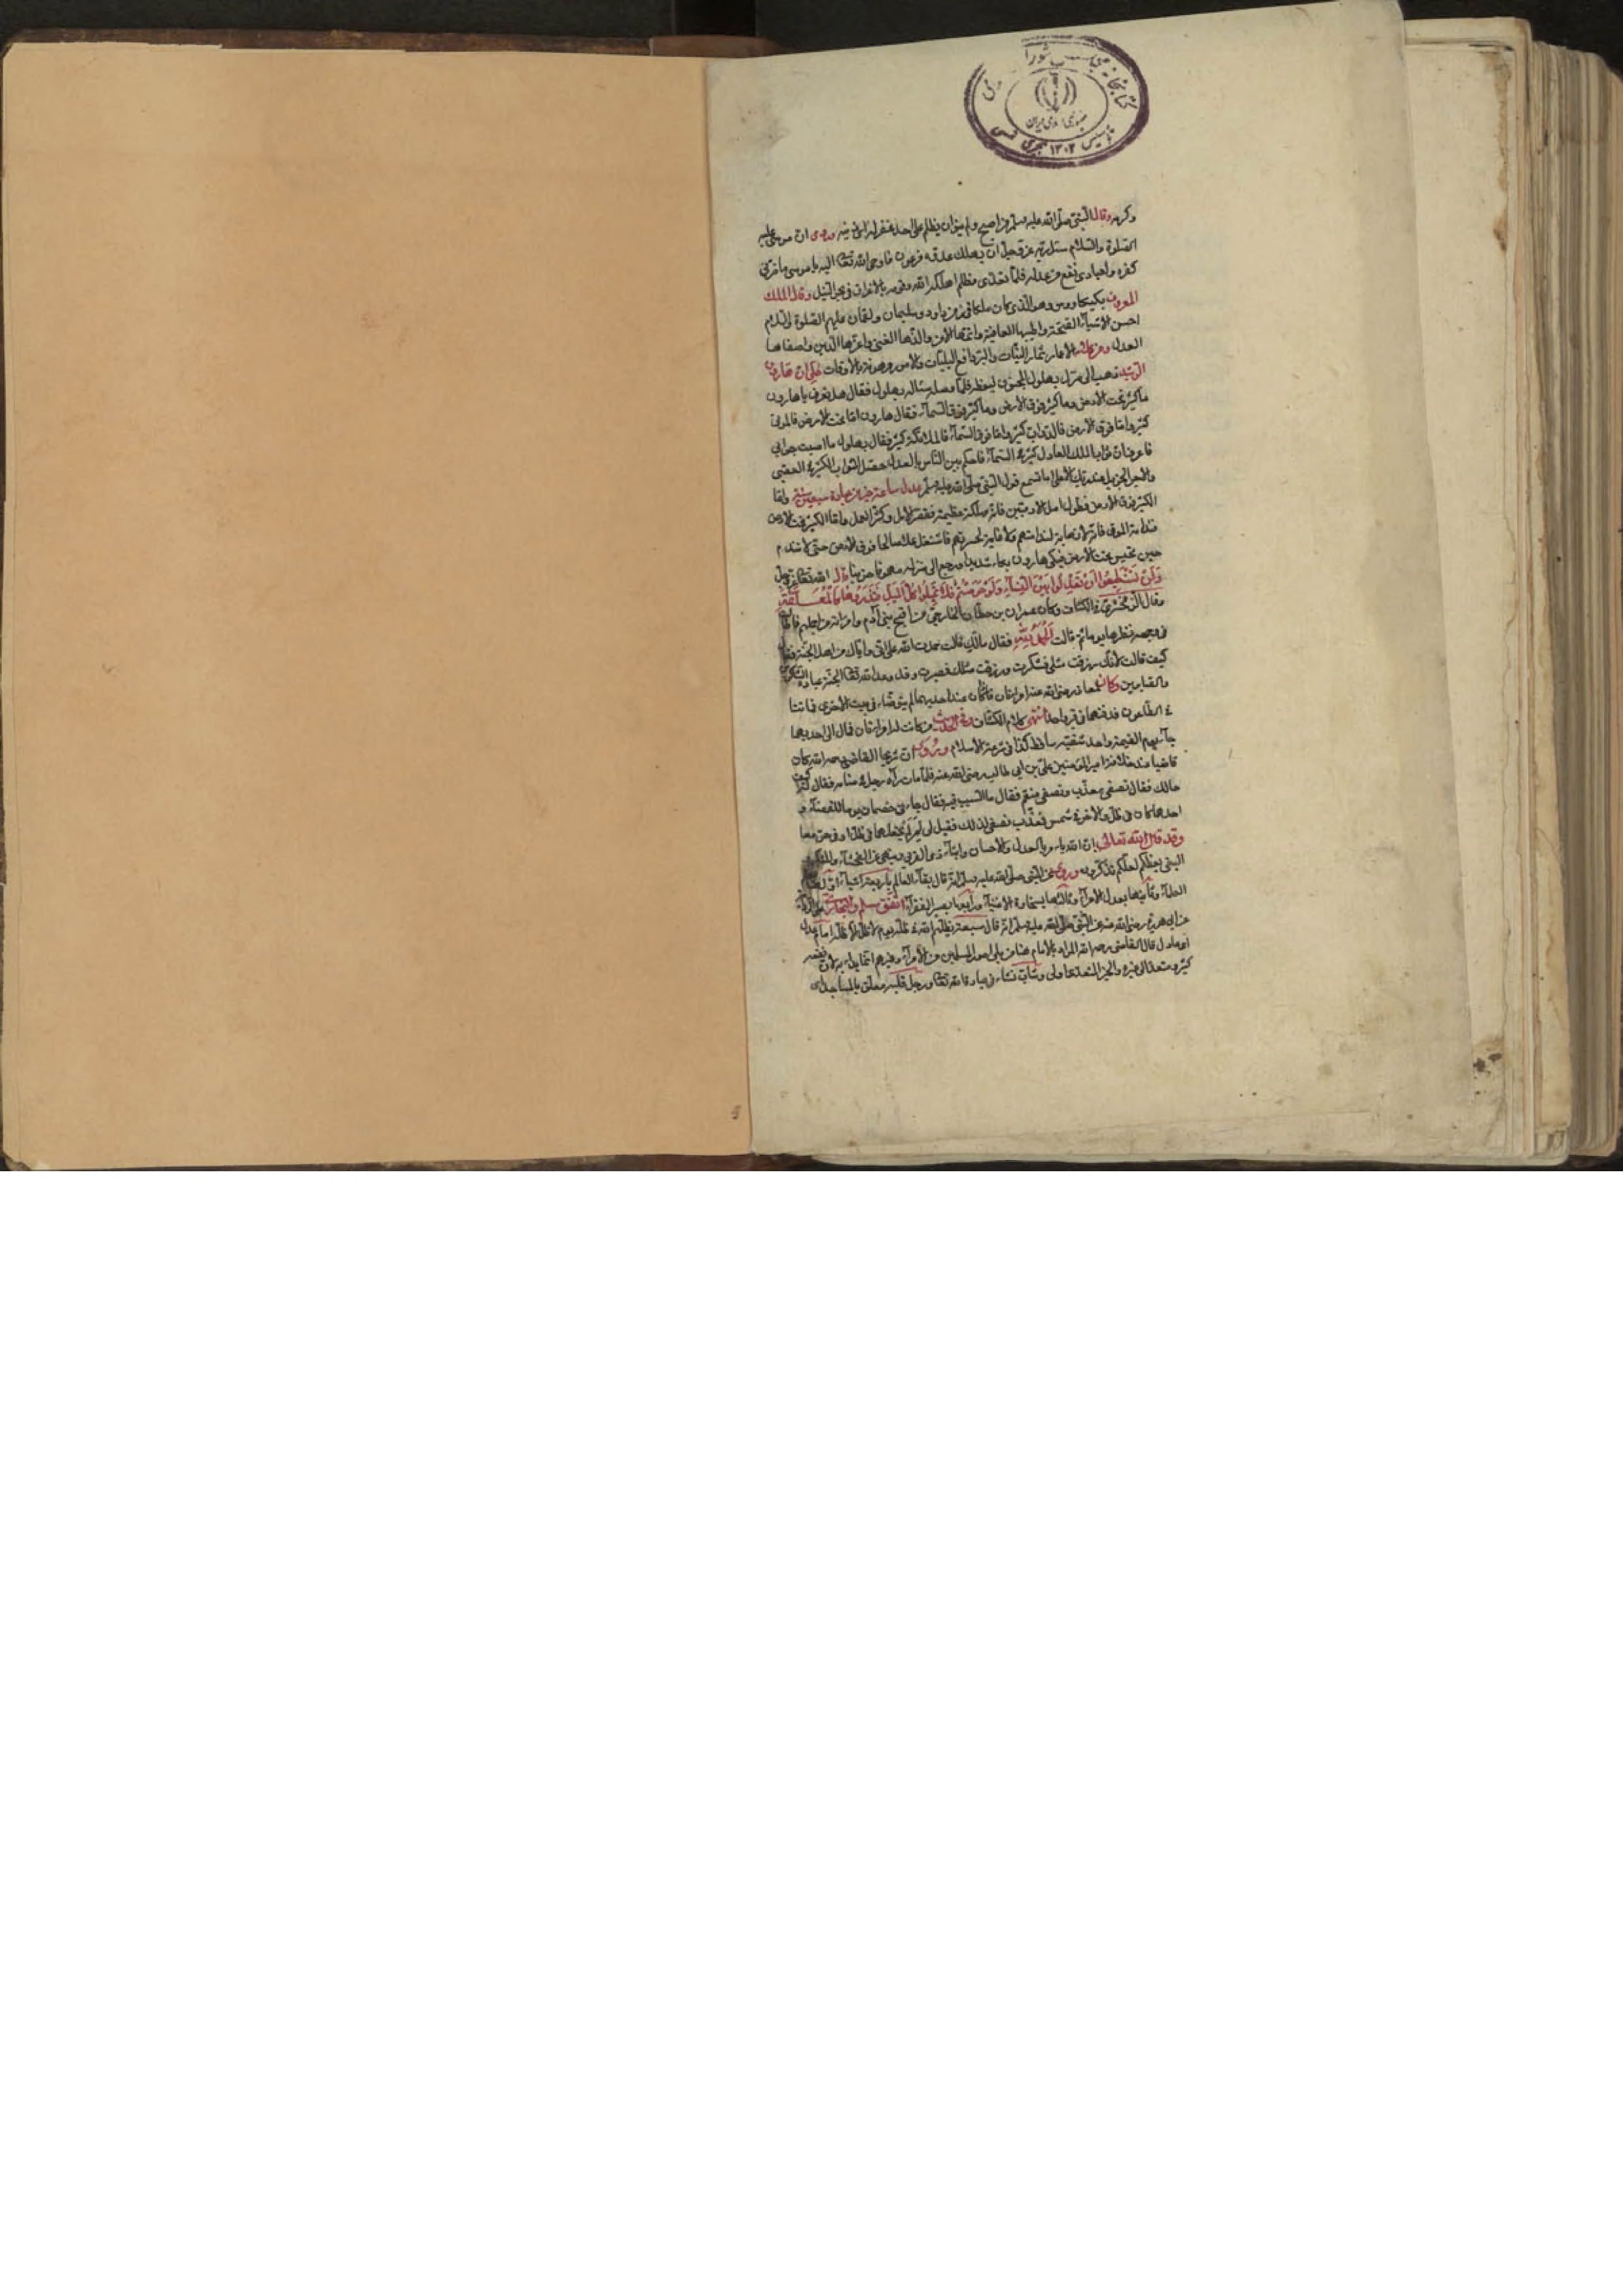 كتابخانه مجلس شورا
جمهوری اسلامی ایران
تأسیس ۱۳۰۲ هجری
وكرمه وقال النبي صلى الله عليه وسلم من اصبح ولم ينو ان يظلم على احد غفر له ان موسى عليه
الصلوة والسلام سئل ربه عز وجل ان يهلك عدوه فرعون فاوحى الله تعالى اليه يا موسى ما ضرني
كفره وعبادي نفع من عدله فلما تعدى وظلم اهلكه الله وقومه بالاغراق في بحر النيل وقال الملك
المعروف بكيكاووس وهو الذي كان ملكا في زمن داود وسليمان ولقمان عليهم الصلوة والسلام
احسن الاشياء الصحة واطيبها العافية واتمها الامن والذها الغنى واعزها الدين واصفاها
العدل الاعمار ثمار النيات والبر دافع البليات والامور مرهونة بالاوقات حكي ان هارون
الرشيد ذهب الى منزل بهلول المجنون ليعظه فلما وصل سئاله بهلول فقال هل تعرف يا هارون
ما كثر تحت الارض وما كثر فوق الارض وما كثر فوق السماء فقال هارون اما تحت الارض فالموتى
كثير واما فوق الارض فالدواب كثير واما فوق السماء فالملائكة كثير فقال بهلول ما اصبت جوابي
فاعرف ان ثواب الملك العادل كثير في السماء فاحكم بين الناس بالعدل حصل الثواب الكثير في العقبى
والاجر الجزيل عند ربك الاعلى اما تسمع قول النبي صلى الله عليه وسلم عدل ساعة خير من عبادة سبعين سنة واما
الكثير فوق الارض فطول امل الادميين فانه مهلكة عظيمة فقصر الامل وكثر العمل واما الكثير تحت الارض
فندامة الموتى فانه لا نهاية لندامتهم ولا غاية لحسرتهم فاشتغل عملا صالحا فوق الارض حتى لا تندم
حين تحبس تحت الارض فبكى هارون بكاء شديدا ورجع الى منزله حزينا قال الله تعالى عز وجل
وَلَنْ تَسْتَطِيعُوا اَنْ تَعْدِلُوا بَيْنَ النِّسَاءِ وَلَوْ حَرَصْتُمْ فَلَا تَمِيلُوا كُلَّ الْمَيْلِ فَتَذَرُوهَا كَالْمُعَلَّقَةِ
وقال الزمخشري في الكشاف وكان عمران بن حطان الخارجي من اقبح بني آدم وامرأته من اجملهم فاطال
في وجهه نظرها يوما ثم قالت الحمد لله فقال مالك قالت حمدت الله على اني واياك من اهل الجنة فقال
كيف قالت لانك رزقت مثلي فشكرت ورزقت مثلك فصبرت وقد وعد الله تعالى الجنة عباده الشاكرين
والصابرين وكان لمعاذ رضي الله عنه امرأتان فاذا كان عند احديهما لم يتوضأ في بيت الاخرى فماتتا
في الطاعون فدفنهما في قبر واحد انتهى كلام الكشاف وفي الحديث من كانت له امرأتان فمال الى احديهما
جاء يوم القيمة واحد شقيه ساقط كذا في شرعة الاسلام وروي ان شريحا القاضي رحمه الله كان
قاضيا من امير المؤمنين علي بن ابي طالب رضي الله عنه فلما مات رآه رجل في منامه فقال كيف
حالك فقال نصفي معذب ونصفي منعم فقال ما السبب فيه فقال جاءني خصمان يوما للقضاء و
احدهما كان في ظل والاخر في شمس فعذب نصفي لذلك فقيل لي لم لم تجعلهما في ظل او في حر معا
وقد قال الله تعالى ان الله يامر بالعدل والاحسان وايتاء ذي القربى وينهى عن الفحشاء والمنكر و
البغي يعظكم لعلكم تذكرون وروي عن النبي صلى الله عليه وسلم انه قال بقاء العالم باربعة اشياء
العلماء وثانيها بعدل الامراء وثالثها بسخاوة الاغنياء ورابعها بصبر الفقراء اتفق مسلم والبخاري
عن ابي هريرة رضي الله عنه عن النبي صلى الله عليه وسلم انه قال سبعة يظلهم الله في ظله يوم لا ظل الا ظله امام عدل
او عادل قال القاضي رحمه الله المراد بالامام هنا من يلي امور المسلمين من الامراء وغيرهم انما بدأ به لان نفعه
كثير ومتعد الى غيره والخير المتعدي اولى وشاب نشاء في عبادة الله تعالى ورجل قلبه معلق بالمساجد اي